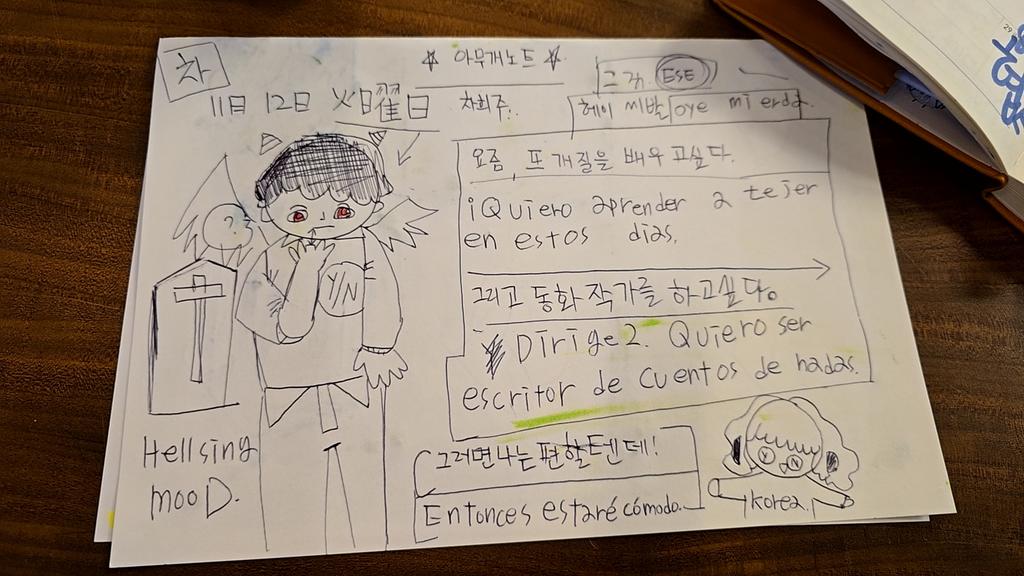 차
☆ 아무개노트 ☆
그거 ESE
11月 12日 火曜日 차회주.
헤이 씨발 oye mierda.
요즘, 뜨개질을 배우고싶다.
¡Quiero aprender a tejer
en estos dias.
그리고 동화 작가를 하고싶다。
Dirige2. Quiero ser
escritor de cuentos de hadas.
Y/N
Hellsing
mooD.
그러면 나는 편할텐데!
Entonces estaré cómodo.
Korea.